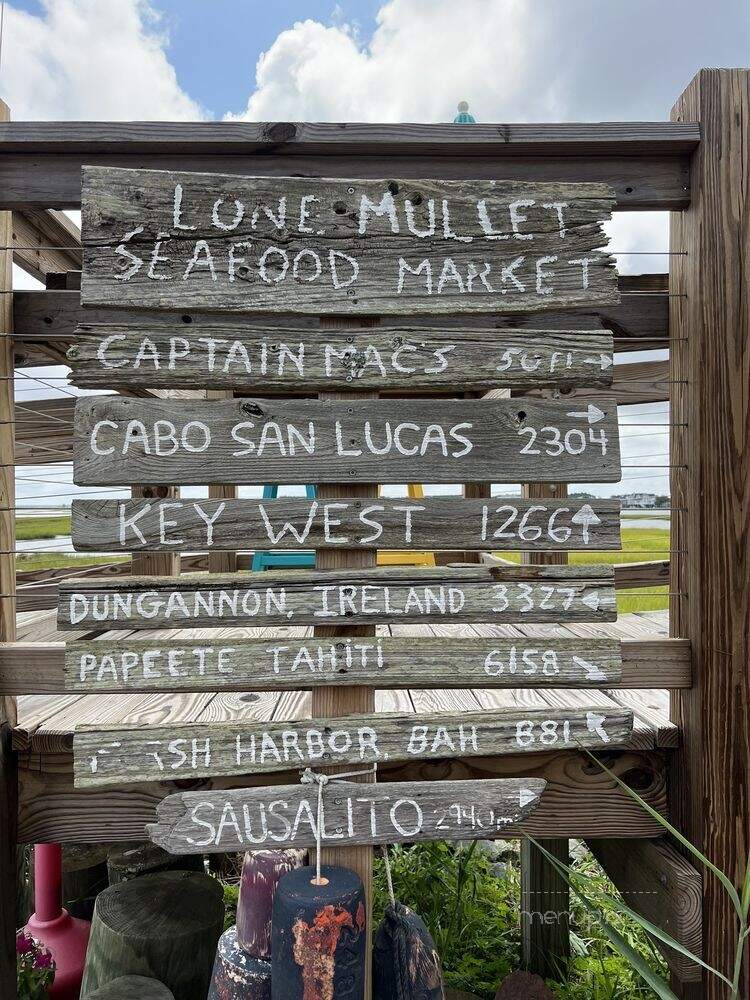 LONE MULLET
SEAFOOD MARKET
CAPTAIN MAC'S
CABO SAN LUCAS 2304
KEY WEST 1266
DUNGANNON, IRELAND 3327
PAPEETE TAHITI 6158
HARBOR, BAH 881
SAUSALITO 2940m